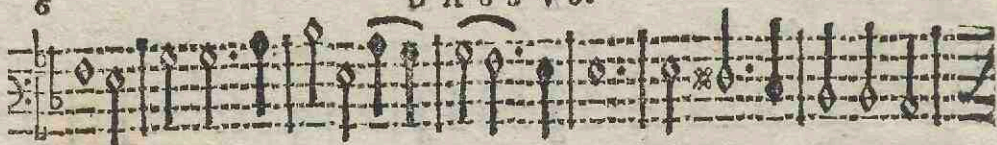 6
B A S S V S.